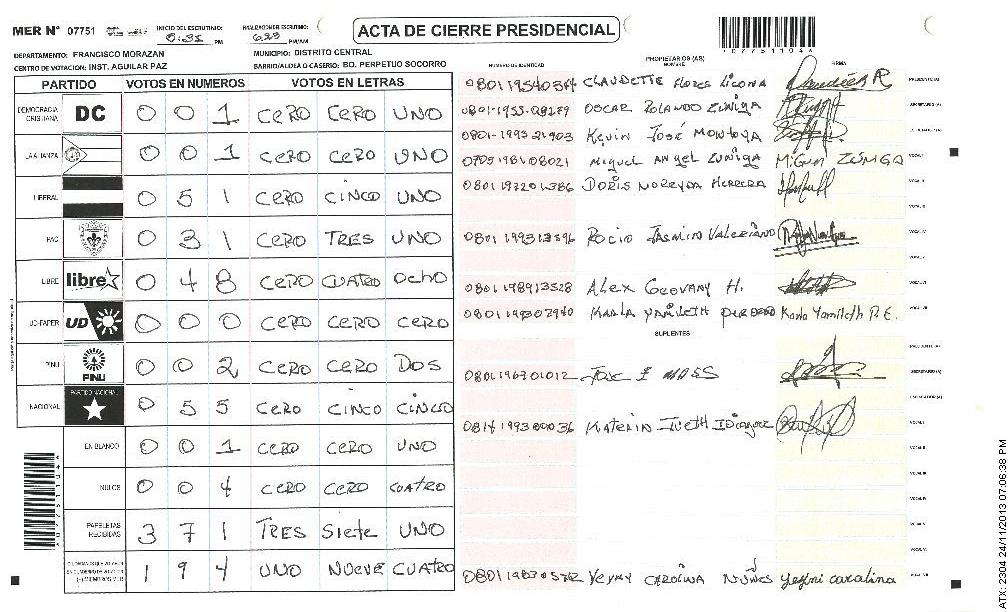 MER Nº 07751 INICIO DEL ESCRUTINIO: PM FINALIZACION DEL ESCRUTINIO: PM/AM
ACTA DE CIERRE PRESIDENCIAL
DEPARTAMENTO: FRANCISCO MORAZAN MUNICIPIO: DISTRITO CENTRAL
CENTRO DE VOTACION: INST. AGUILAR PAZ BARRIO/ALDEA O CASERIO: BO. PERPETUO SOCORRO
PARTIDO VOTOS EN NUMEROS VOTOS EN LETRAS
DEMOCRACIA CRISTIANA DC 0 0 1 CERO CERO UNO
LA ALIANZA 0 0 1 CERO CERO UNO
LIBERAL 0 5 1 CERO CINCO UNO
PAC 0 3 1 CERO TRES UNO
LIBRE libre 0 4 8 CERO CUATRO OCHO
UD-FAPER UD 0 0 0 CERO CERO CERO
PINU PINU 0 0 2 CERO CERO DOS
NACIONAL PARTIDO NACIONAL 0 5 5 CERO CINCO CINCO
EN BLANCO 0 0 1 CERO CERO UNO
NULOS 0 0 4 CERO CERO CUATRO
PAPELETAS RECIBIDAS 3 7 1 TRES Siete UNO
1 9 4 UNO NUEVE CUATRO
NUMERO DE IDENTIDAD PROPIETARIOS (AS) NOMBRE FIRMA
CLAUDETTE FLORES LICONA PRESIDENTE(A)
OSCAR ROLANDO ZUNIGA SECRETARIO(A)
0801-1993 21903 KEVIN JOSÉ MONTOYA
MIGUEL ANGEL ZUNIGA MiGuel ZUNIGA VOCAL I
0801 197201386 DORIS NOREYDA HERRERA VOCAL II
VOCAL III
0801 199313596 ROCIO JASMIN VALERIANO VOCAL IV
VOCAL V
0801 198913528 ALEX GEOVANY H. VOCAL VI
KARLA YAMILETH Karla Yamileth P.E. VOCAL VII
SUPLENTES
PRESIDENTE(A)
0801196301012 JOSE SECRETARIO(A)
ESCRUTADOR(A)
KATERIN IVETH VOCAL I
VOCAL II
VOCAL III
VOCAL IV
VOCAL V
VOCAL VI
CAROLINA NUÑES yeymi carolina VOCAL VII
ATX: 2304 24/11/2013 07:06:38 PM